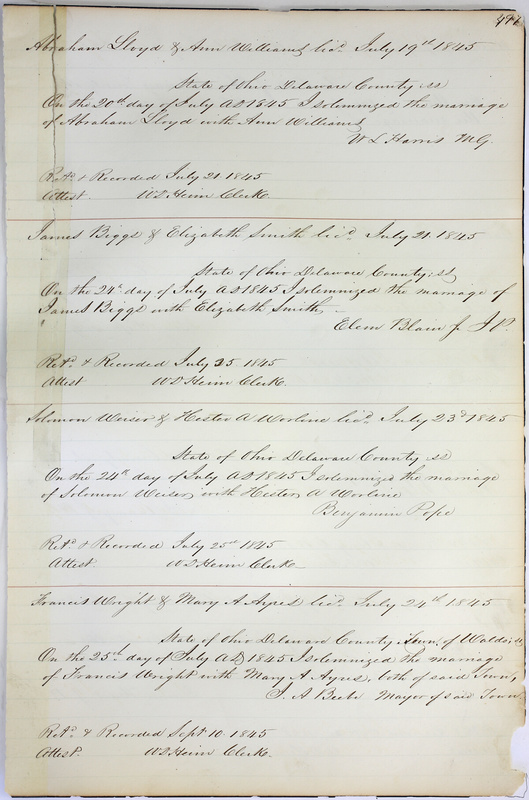 Abraham Lloyd & Ann Williams licd. July 19th 1845
State of Ohio Delaware County ss
On the 20th day of July AD 1845 I solemnized the marriage
of Abraham Lloyd with Ann Williams
W L Harris M.G.
Retd. & Recorded July 21 1845
Attest. W D Heim Clerk.
James Biggs & Elizabeth Smith licd. July 21. 1845
State of Ohio Delaware County; ss
On the 24th day of July AD 1845 I solemnized the marriage of
James Biggs with Elizabeth Smith
Elem Blain Jr J.P.
Retd. & Recorded July 25 1845
Attest W D Heim Clerk.
Solomon Weiser & Hester A Worline licd. July 23d 1845
State of Ohio Delaware County ss
On the 24th day of July AD 1845 I solemnized the marriage
of Solomon Weiser with Hester A Worline
Benjamin Pope
Retd. & Recorded July 25th 1845
Attest W D Heim Clerk
Francis Wright & Mary A Ayres licd. July 24th 1845
State of Ohio Delaware County Town of Waldo; ss
On the 25th day of July AD 1845 I solemnized the marriage
of Francis Wright with Mary A Ayres, both of said Town,
J. A Beebe Mayor of said Town
Retd. & Recorded Sept 10. 1845
Attest. W D Heim Clerk.